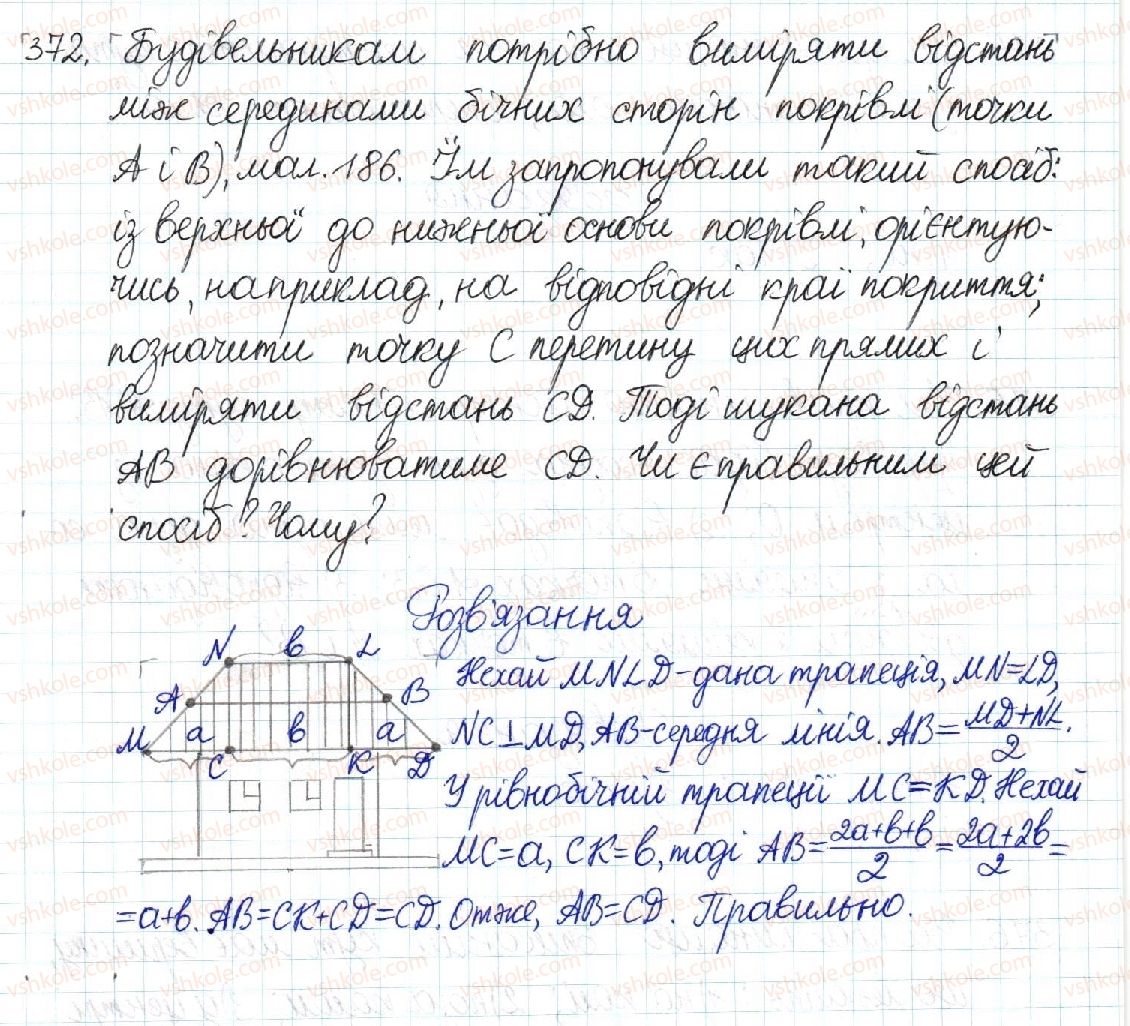 372. Будівельникам потрібно виміряти відстань
між серединами бічних сторін покрівлі (точки
А і В), мал. 186. Їм запропонували такий спосіб:
із верхньої до нижньої основи покрівлі, орієнтую-
чись, наприклад, на відповідні краї покриття;
позначити точку С перетину цих прямих і
виміряти відстань CD. Тоді шукана відстань
АВ дорівнюватиме CD. Чи є правильним цей
спосіб? Чому?
Розв'язання
N в L
A B
M a в a
C K D
Нехай MNLD - дана трапеція, MN=LD,
NC⊥MD, AB-середня лінія. AB=(MD+NL)/2.
У рівнобічній трапеції MC=KD. Нехай
MC=a, CK=в, тоді AB=(2a+в+в)/2=(2a+2в)/2=
=a+в. AB=CK+CD=CD. Отже, AB=CD. Правильно.
vshkole.com